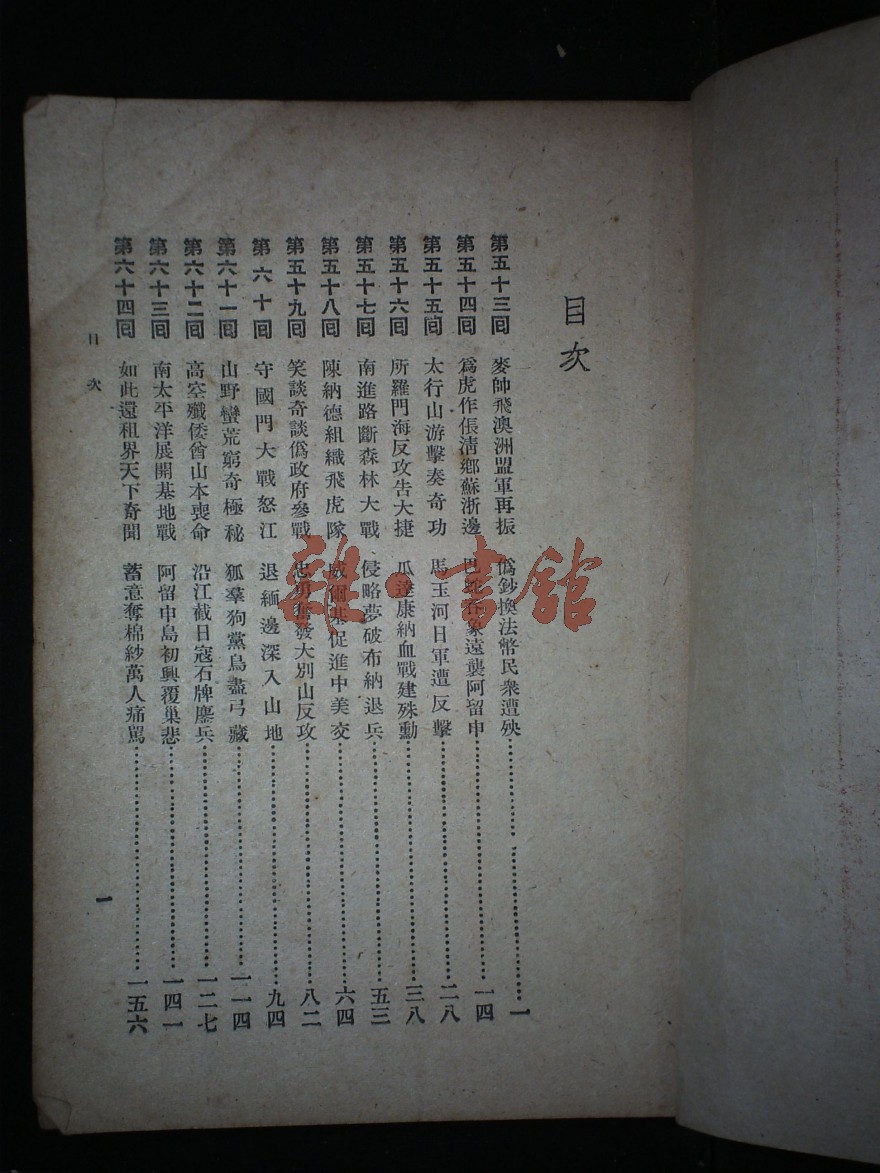 目次
第五十三囘 麥帥飛澳洲盟軍再振 僞鈔換法幣民衆遭殃 一
第五十四囘 爲虎作倀淸鄉蘇浙邊 巴蛇吞象遠襲阿留申 一四
第五十五囘 太行山游擊奏奇功 馬玉河日軍遭反擊 二八
第五十六囘 所羅門海反攻告大捷 瓜達康納血戰建殊勳 三八
第五十七囘 南進路斷森林大戰 侵略夢破布納退兵 五三
第五十八囘 陳納德組織飛虎隊 威爾基促進中美交 六四
第五十九囘 笑談奇談僞政府參戰 忠勇奮發大別山反攻 八二
第六十囘 守國門大戰怒江 退緬邊深入山地 九四
第六十一囘 山野蠻荒窮奇極秘 狐羣狗黨鳥盡弓藏 一一四
第六十二囘 高空殲倭酋山本喪命 沿江截日寇石牌鏖兵 一二七
第六十三囘 南太平洋展開基地戰 阿留申島初興覆巢悲 一四一
第六十四囘 如此還租界天下奇聞 蓄意奪棉紗萬人痛罵 一五六
目次
一
雜·書館